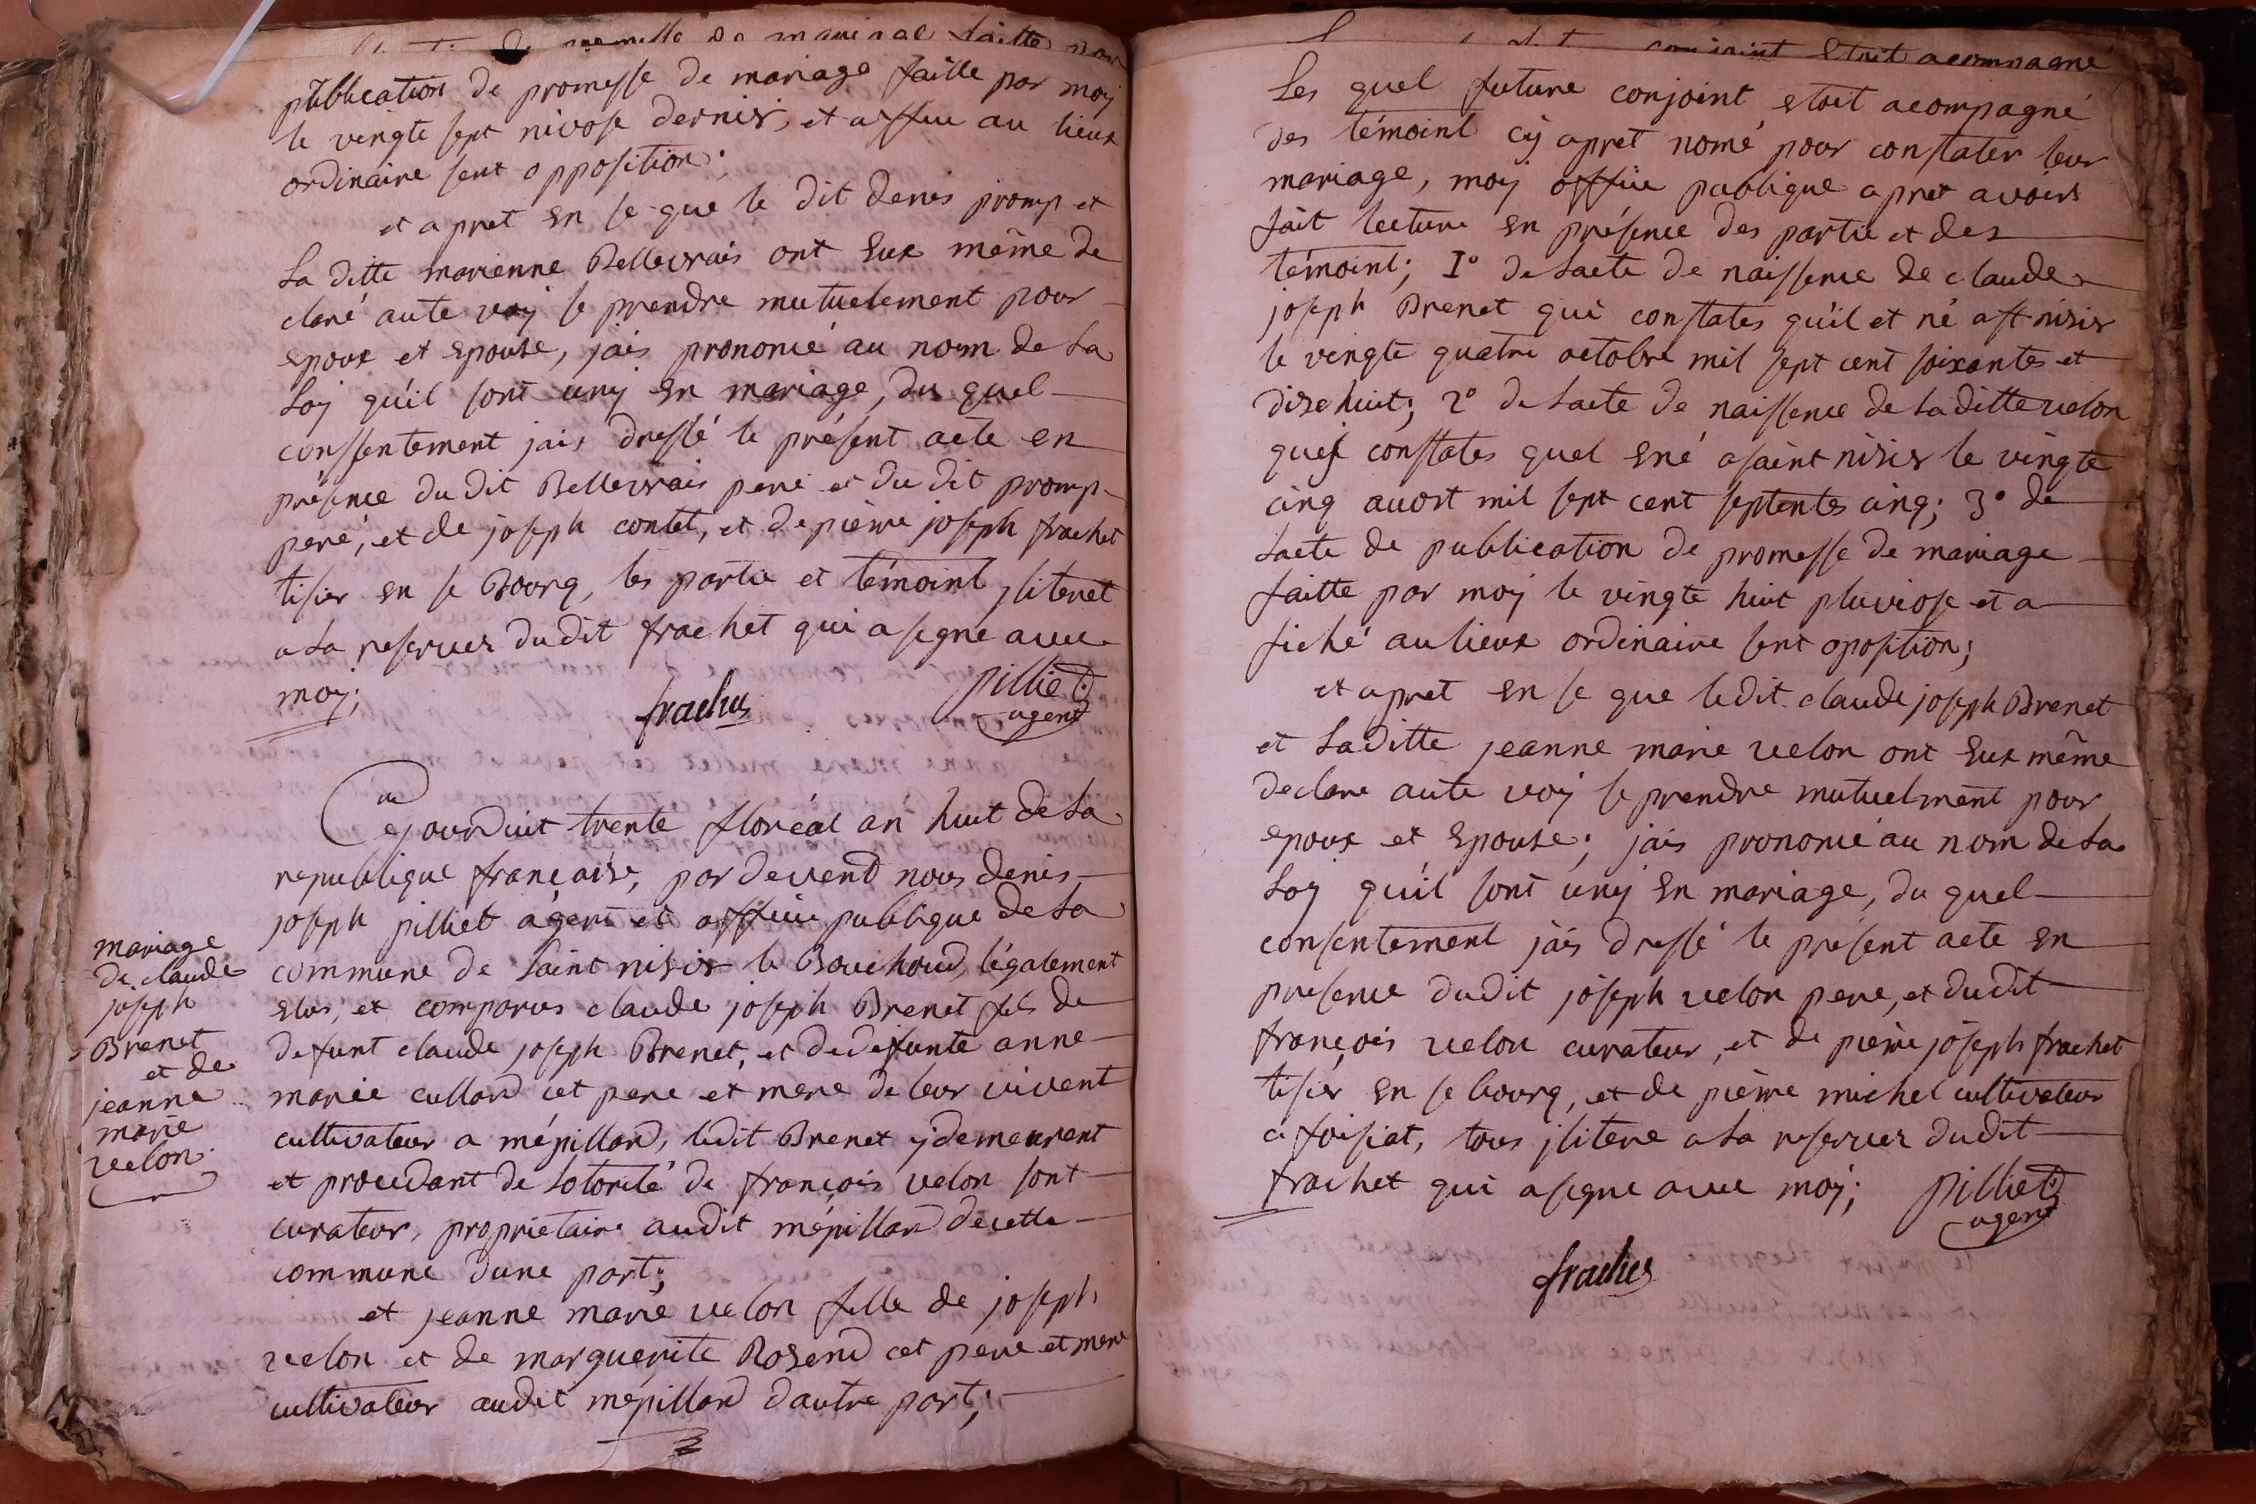 publication de promesse de mariage faitte par moy
le vingte sept nivose dernier, et affiu au lieux
ordinaire sent opposition;
et apret en se que le dit denis promp et
la ditte marienne Bellevrais ont Eux même de
claré aute voy se prendre mutuelement pour
epoux et epouse, jais prononié au nom de la
Loy qu'il sont uny En mariage, du quel
conssentement jais dressé le présent acte en
présence du dit Bellevrais pere et du dit promp
peré, et de joseph contet, et de pierre joseph frachet
tisier en se Bourg, les partie et témoint jliteret
a la reserves du dit frachet qui a signe avec
moy;
frachet
pilliet
agent
mariage
de claude
joseph
Brenet
et de
jeanne
marie
velon
Cejourduit trente floréal an huit de la
republique française, par devend nous denis
joseph pilliet agent et offiiu publique de la
commune de saint nisier le Bouchoud, légalement
elus, et comparus claude joseph Brenet fils de
defunt claude joseph Brenet, et de defunte anne
marie cullard cet pere et mere de leur vivent
cultivateur a mépillard, ledit Brenet y demeurent
et procedant de lotorité de françois velon sont
curateur, proprietaire audit mépillard de cette
commune dune part;
et jeanne marie velon fille de joseph
velon et de marguerite Rosend cet pere et mere
cultivateur audit mépillard dautre part;
conjoint Etoit acompagné
Les quel future conjoint etoit acompagné
des témoint cy apret nomé pour constater leur
mariage, moy offiie publique apret avoirs
fait lecture en présence des partie et des
témoint; 1° de lacte de naissence de claude
joseph Brenet qui constates qu'il et né a st nisier
le vingte quatre octobre mil sept cent soixantes et
dixe huit; 2° de lacte de naissence de la ditte velon
queſ constates quel Ené a saint nisier le vingte
cinq auost mil sept cent septentes cinq; 3° de
lacte de publication de promesse de mariage
faitte par moy le vingte huit pluviose et a
fiché au lieux ordinaire sent oposition;
et apret en se que ledit claude joseph Brenet
et la ditte jeanne marie velon ont Eux même
declare aute voy se prendre mutuelment pour
epoux et Epouse; jais prononié au nom de la
Loy qu'il sont uny En mariage, du quel
consentement jais dressé le présent acte en
presence dudit joseph velon pere, et dudit
françois velon curateur, et de pierre joseph frachet
tisier en se bourg, et de pierre michel cultivateur
a foisiat, tous jlitere a la reserves dudit
frachet qui a signe avec moy;
pilliet
agent
frachet